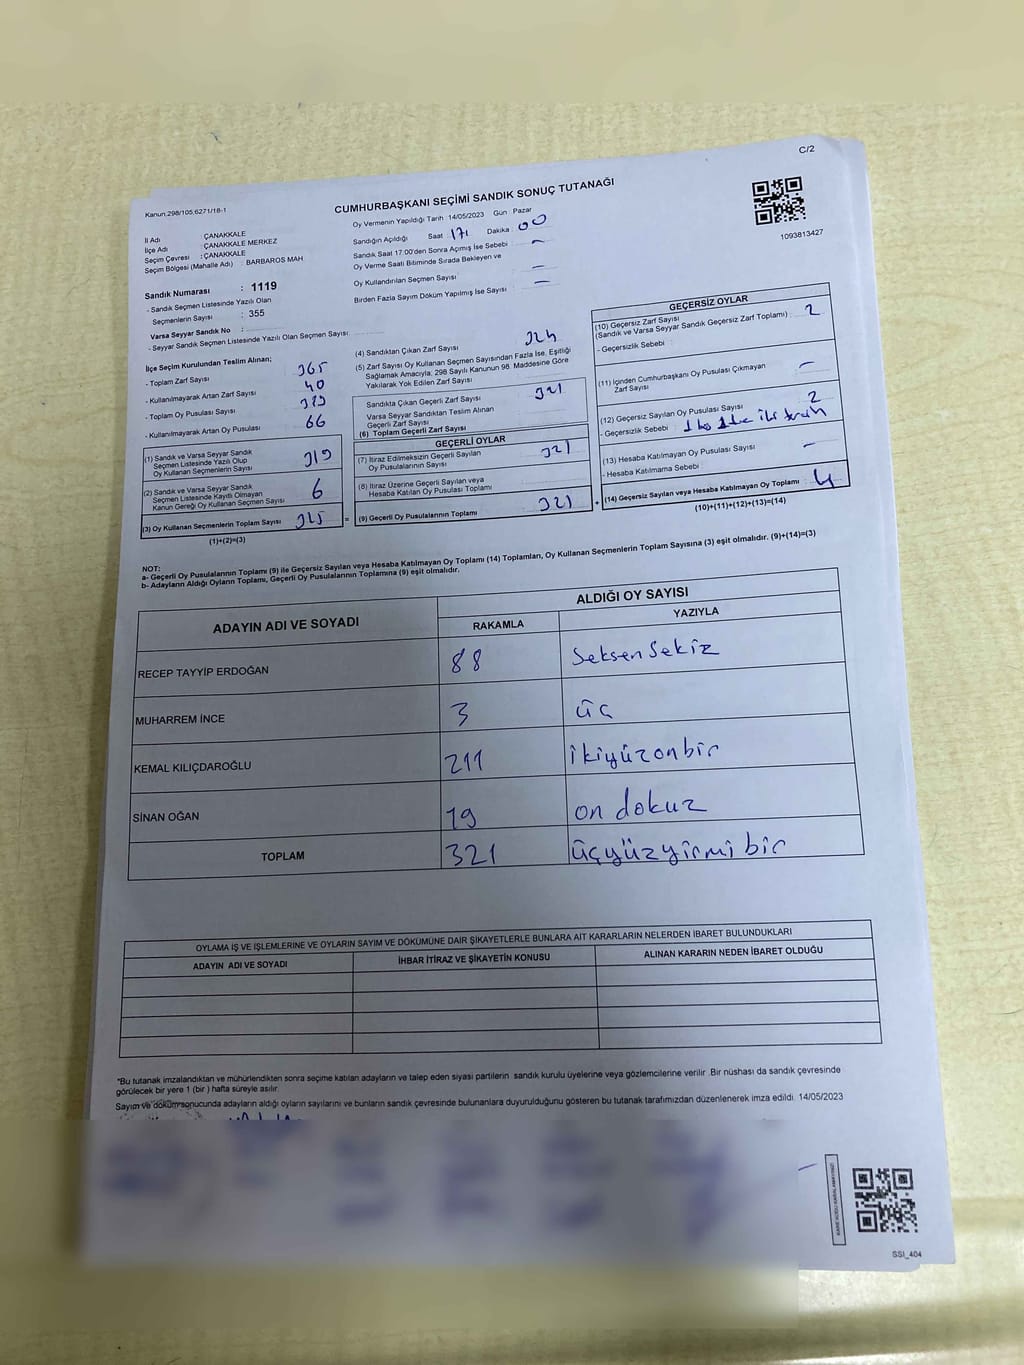 C/2
Kanun.298/105,6271/18-1
CUMHURBAŞKANI SEÇİMİ SANDIK SONUÇ TUTANAĞI
1093813427
İl Adı : ÇANAKKALE
İlçe Adı : ÇANAKKALE MERKEZ
Seçim Çevresi : ÇANAKKALE
Seçim Bölgesi (Mahalle Adı) : BARBAROS MAH
Sandık Numarası : 1119
- Sandık Seçmen Listesinde Yazılı Olan
Seçmenlerin Sayısı : 355
Varsa Seyyar Sandık No :
- Seyyar Sandık Seçmen Listesinde Yazılı Olan Seçmen Sayısı:
Oy Vermenin Yapıldığı Tarih :14/05/2023 Gün : Pazar
Sandığın Açıldığı Saat 17 Dakika : 00
Sandık Saat 17:00'den Sonra Açımış İse Sebebi -
Oy Verme Saati Bitiminde Sırada Bekleyen ve
Oy Kullandırılan Seçmen Sayısı -
Birden Fazla Sayım Döküm Yapılmış İse Sayısı -
İlçe Seçim Kurulundan Teslim Alınan;
- Toplam Zarf Sayısı 365
- Kullanılmayarak Artan Zarf Sayısı 40
- Toplam Oy Pusulası Sayısı
- Kullanılmayarak Artan Oy Pusulası 66
(1) Sandık ve Varsa Seyyar Sandık
Seçmen Listesinde Yazılı Olup
Oy Kullanan Seçmenlerin Sayısı 319
(2) Sandık ve Varsa Seyyar Sandık
Seçmen Listesinde Kayıtlı Olmayan
Kanun Gereği Oy Kullanan Seçmen Sayısı 6
(3) Oy Kullanan Seçmenlerin Toplam Sayısı 325 =
(1)+(2)=(3)
(4) Sandıktan Çıkan Zarf Sayısı
(5) Zarf Sayısı Oy Kullanan Seçmen Sayısından Fazla İse, Eşitliği
Sağlamak Amacıyla; 298 Sayılı Kanunun 98. Maddesine Göre
Yakılarak Yok Edilen Zarf Sayısı
Sandıkta Çıkan Geçerli Zarf Sayısı 321
Varsa Seyyar Sandıktan Teslim Alınan
Geçerli Zarf Sayısı
(6) Toplam Geçerli Zarf Sayısı
GEÇERLİ OYLAR
(7) İtiraz Edilmeksizin Geçerli Sayılan
Oy Pusulalarının Sayısı 321
(8) İtiraz Üzerine Geçerli Sayılan veya
Hesaba Katılan Oy Pusulası Toplamı
(9) Geçerli Oy Pusulalarının Toplamı 321 +
GEÇERSİZ OYLAR
(10) Geçersiz Zarf Sayısı
(Sandık ve Varsa Seyyar Sandık Geçersiz Zarf Toplamı) : 2
- Geçersizlik Sebebi :
(11) İçinden Cumhurbaşkanı Oy Pusulası Çıkmayan
Zarf Sayısı -
(12) Geçersiz Sayılan Oy Pusulası Sayısı 2
- Geçersizlik Sebebi :
(13) Hesaba Katılmayan Oy Pusulası Sayısı -
- Hesaba Katılmama Sebebi :
(14) Geçersiz Sayılan veya Hesaba Katılmayan Oy Toplamı 4
(10)+(11)+(12)+(13)=(14)
NOT:
a- Geçerli Oy Pusulalarının Toplamı (9) ile Geçersiz Sayılan veya Hesaba Katılmayan Oy Toplamı (14) Toplamları, Oy Kullanan Seçmenlerin Toplam Sayısına (3) eşit olmalıdır. (9)+(14)=(3)
b- Adayların Aldığı Oyların Toplamı, Geçerli Oy Pusulalarının Toplamına (9) eşit olmalıdır.
ADAYIN ADI VE SOYADI ALDIĞI OY SAYISI
RAKAMLA YAZIYLA
RECEP TAYYİP ERDOĞAN 88 Seksen Sekiz
MUHARREM İNCE 3 üç
KEMAL KILIÇDAROĞLU 211 ikiyüzonbir
SİNAN OĞAN 19 on dokuz
TOPLAM 321 üçyüzyirmi bir
OYLAMA İŞ VE İŞLEMLERİNE VE OYLARIN SAYIM VE DÖKÜMÜNE DAİR ŞİKAYETLERLE BUNLARA AİT KARARLARIN NELERDEN İBARET BULUNDUKLARI
ADAYIN ADI VE SOYADI İHBAR İTİRAZ VE ŞİKAYETİN KONUSU ALINAN KARARIN NEDEN İBARET OLDUĞU
*Bu tutanak imzalandıktan ve mühürlendikten sonra seçime katılan adayların ve talep eden siyasi partilerin sandık kurulu üyelerine veya gözlemcilerine verilir .Bir nüshası da sandık çevresinde
görülecek bir yere 1 (bir ) hafta süreyle asılır.
Sayım ve dökümsonucunda adayların aldığı oyların sayılarını ve bunların sandık çevresinde bulunanlara duyurulduğunu gösteren bu tutanak tarafımızdan düzenlenerek imza edildi. 14/05/2023
SSI_404